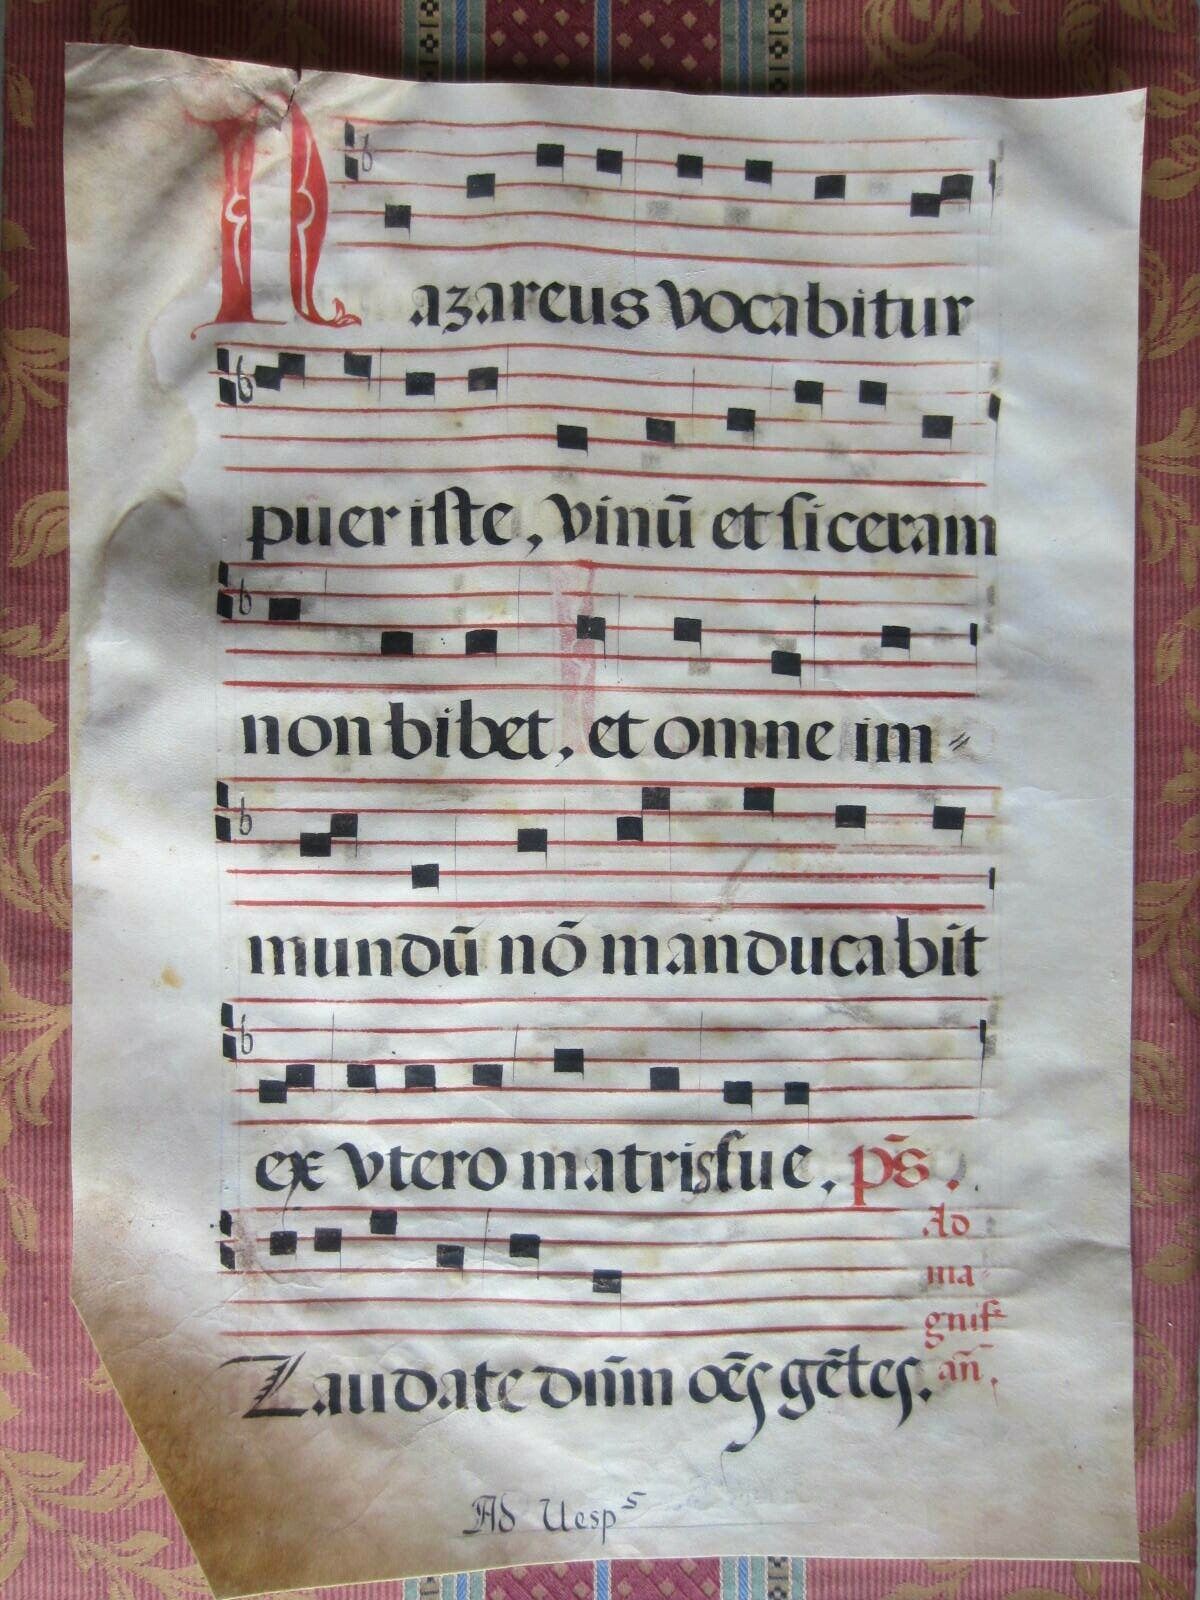 Nazareus vocabitur
puer iſte, vinū et ſiceram
non bibet, et omne im⸗
mundū nō manducabit
ex vtero matris ſue. p̄s.
Laudate dn̄m oēs gētes.
Ad
ma⸗
gnif.
an̄.
Ad Uesp s